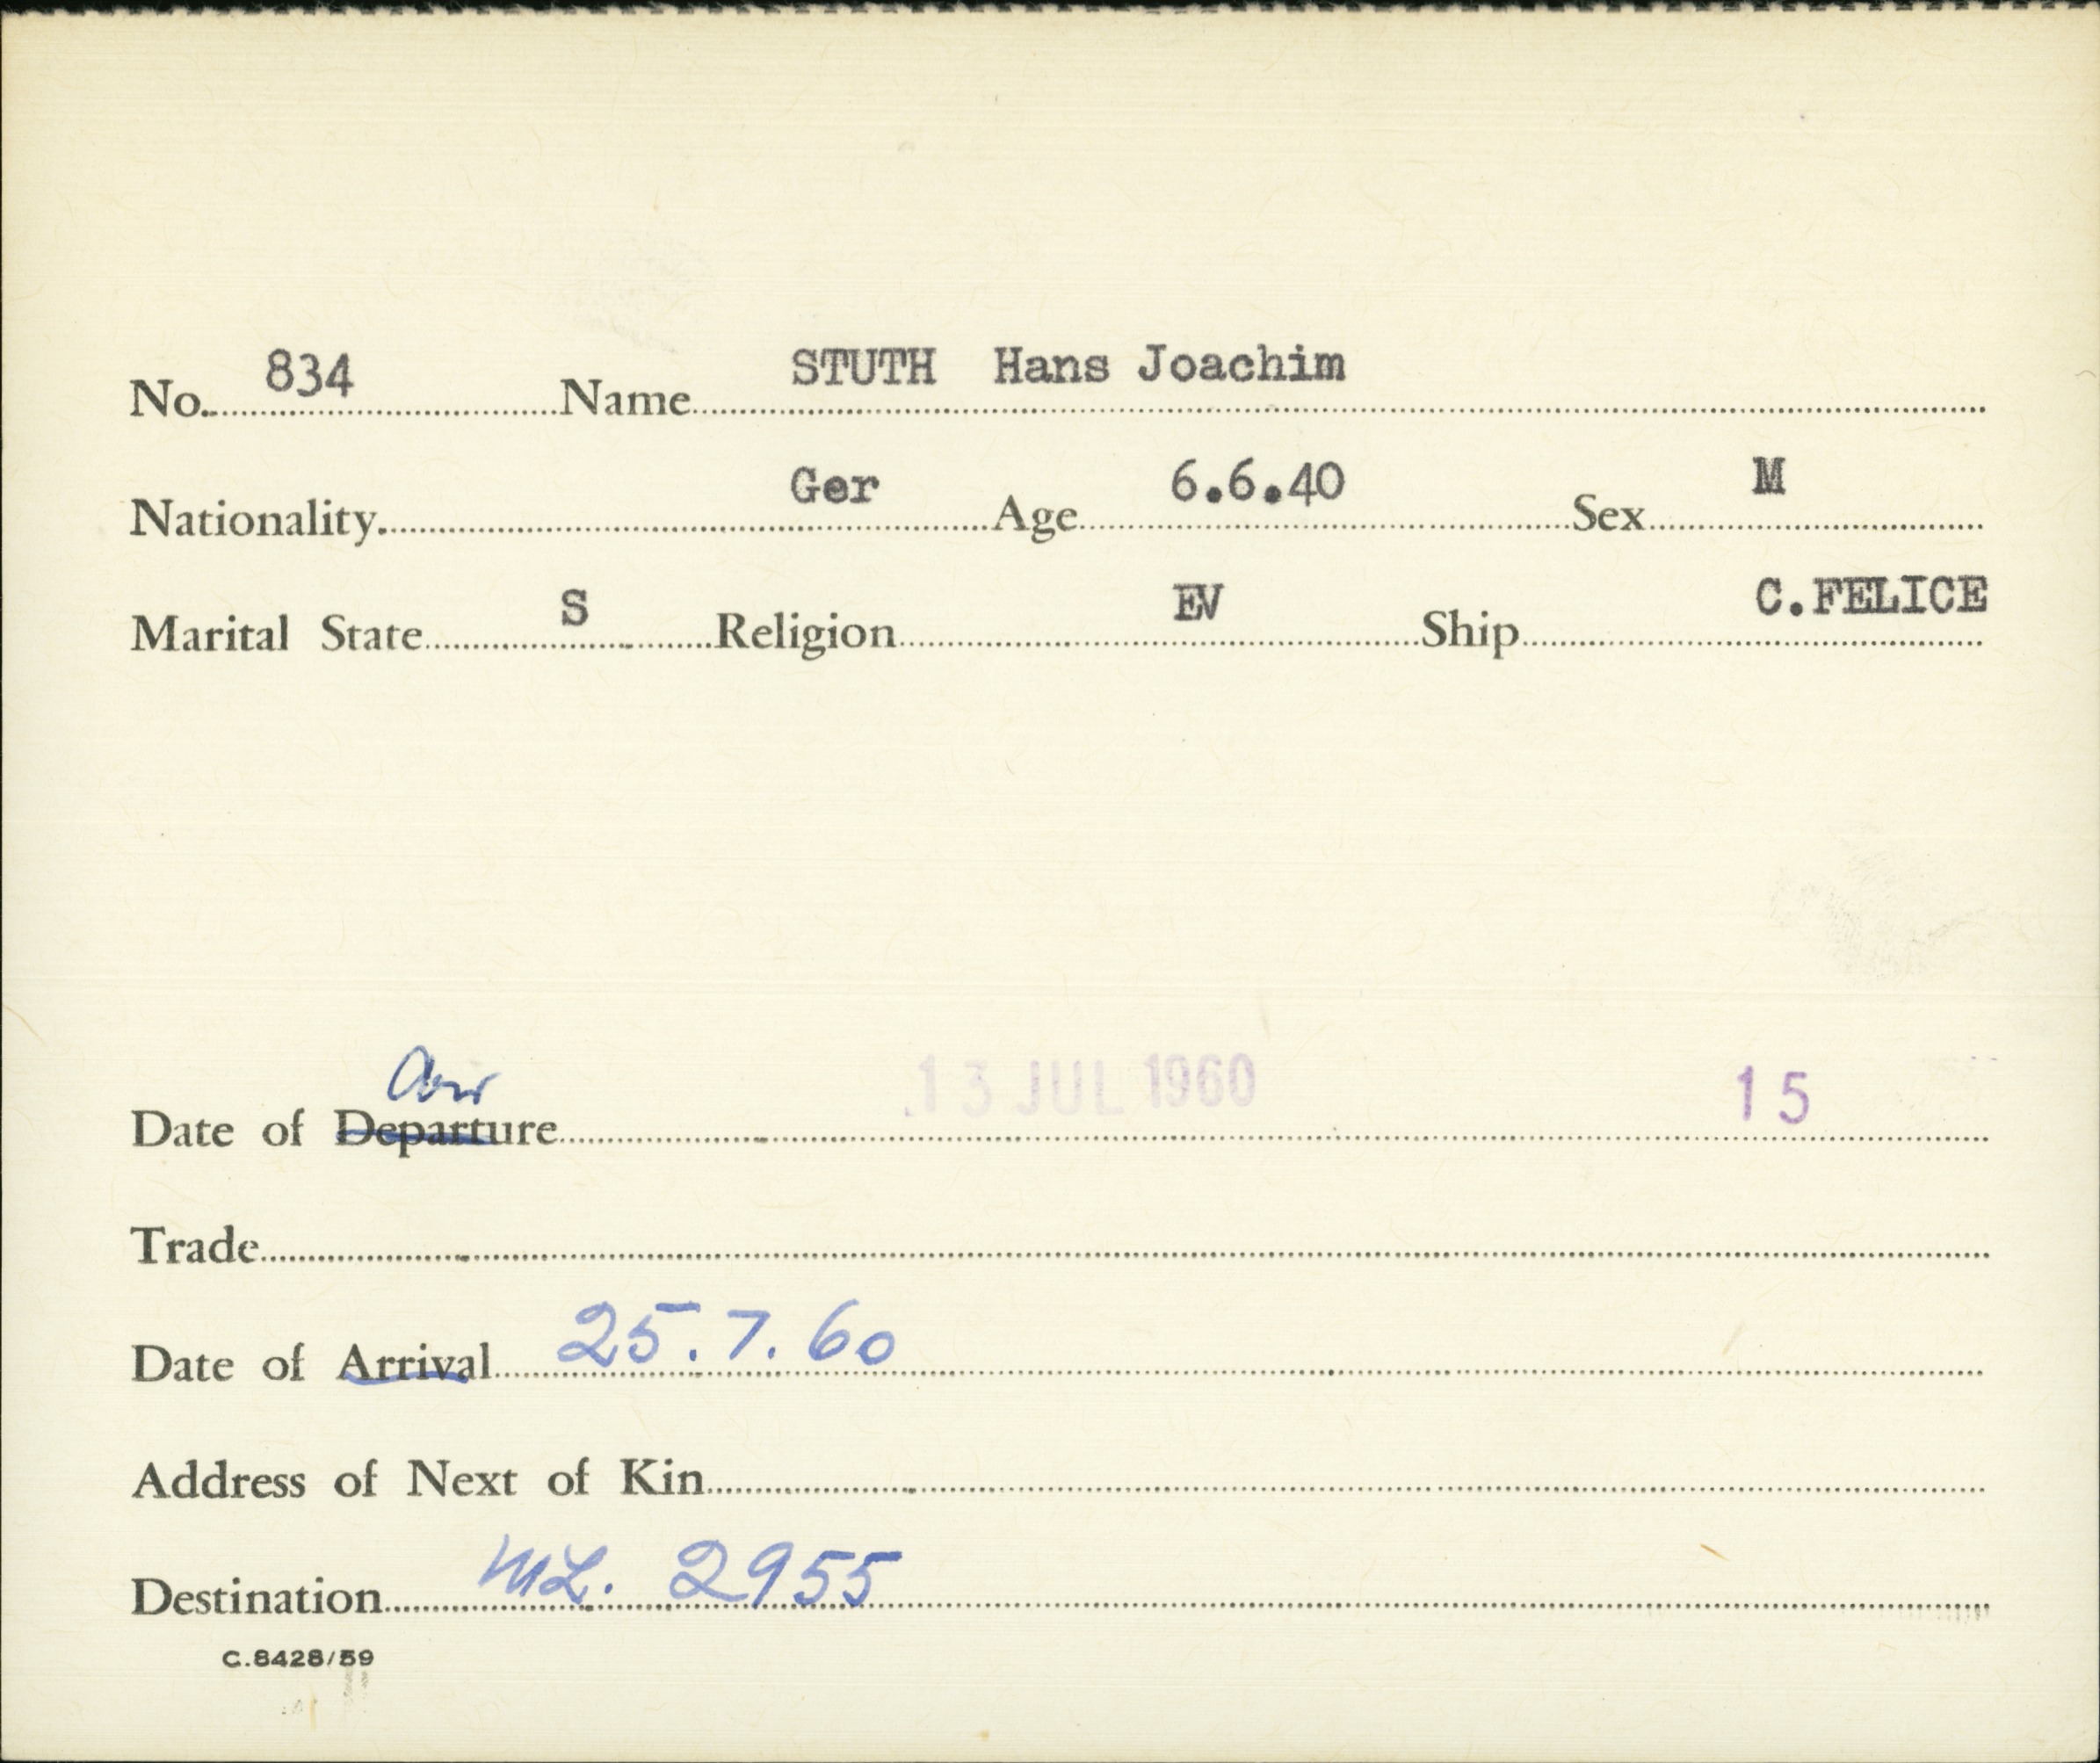 No. 834 Name STUTH Hans Joachim
Nationality. Ger Age 6.6.40 Sex M
Marital State S Religion EV Ship C.FELICE
Arr
Date of Departure 13 JUL 1960 15
Trade
Date of Arrival 25.7.60
Address of Next of Kin
Destination ML. 2955
C.8428/59